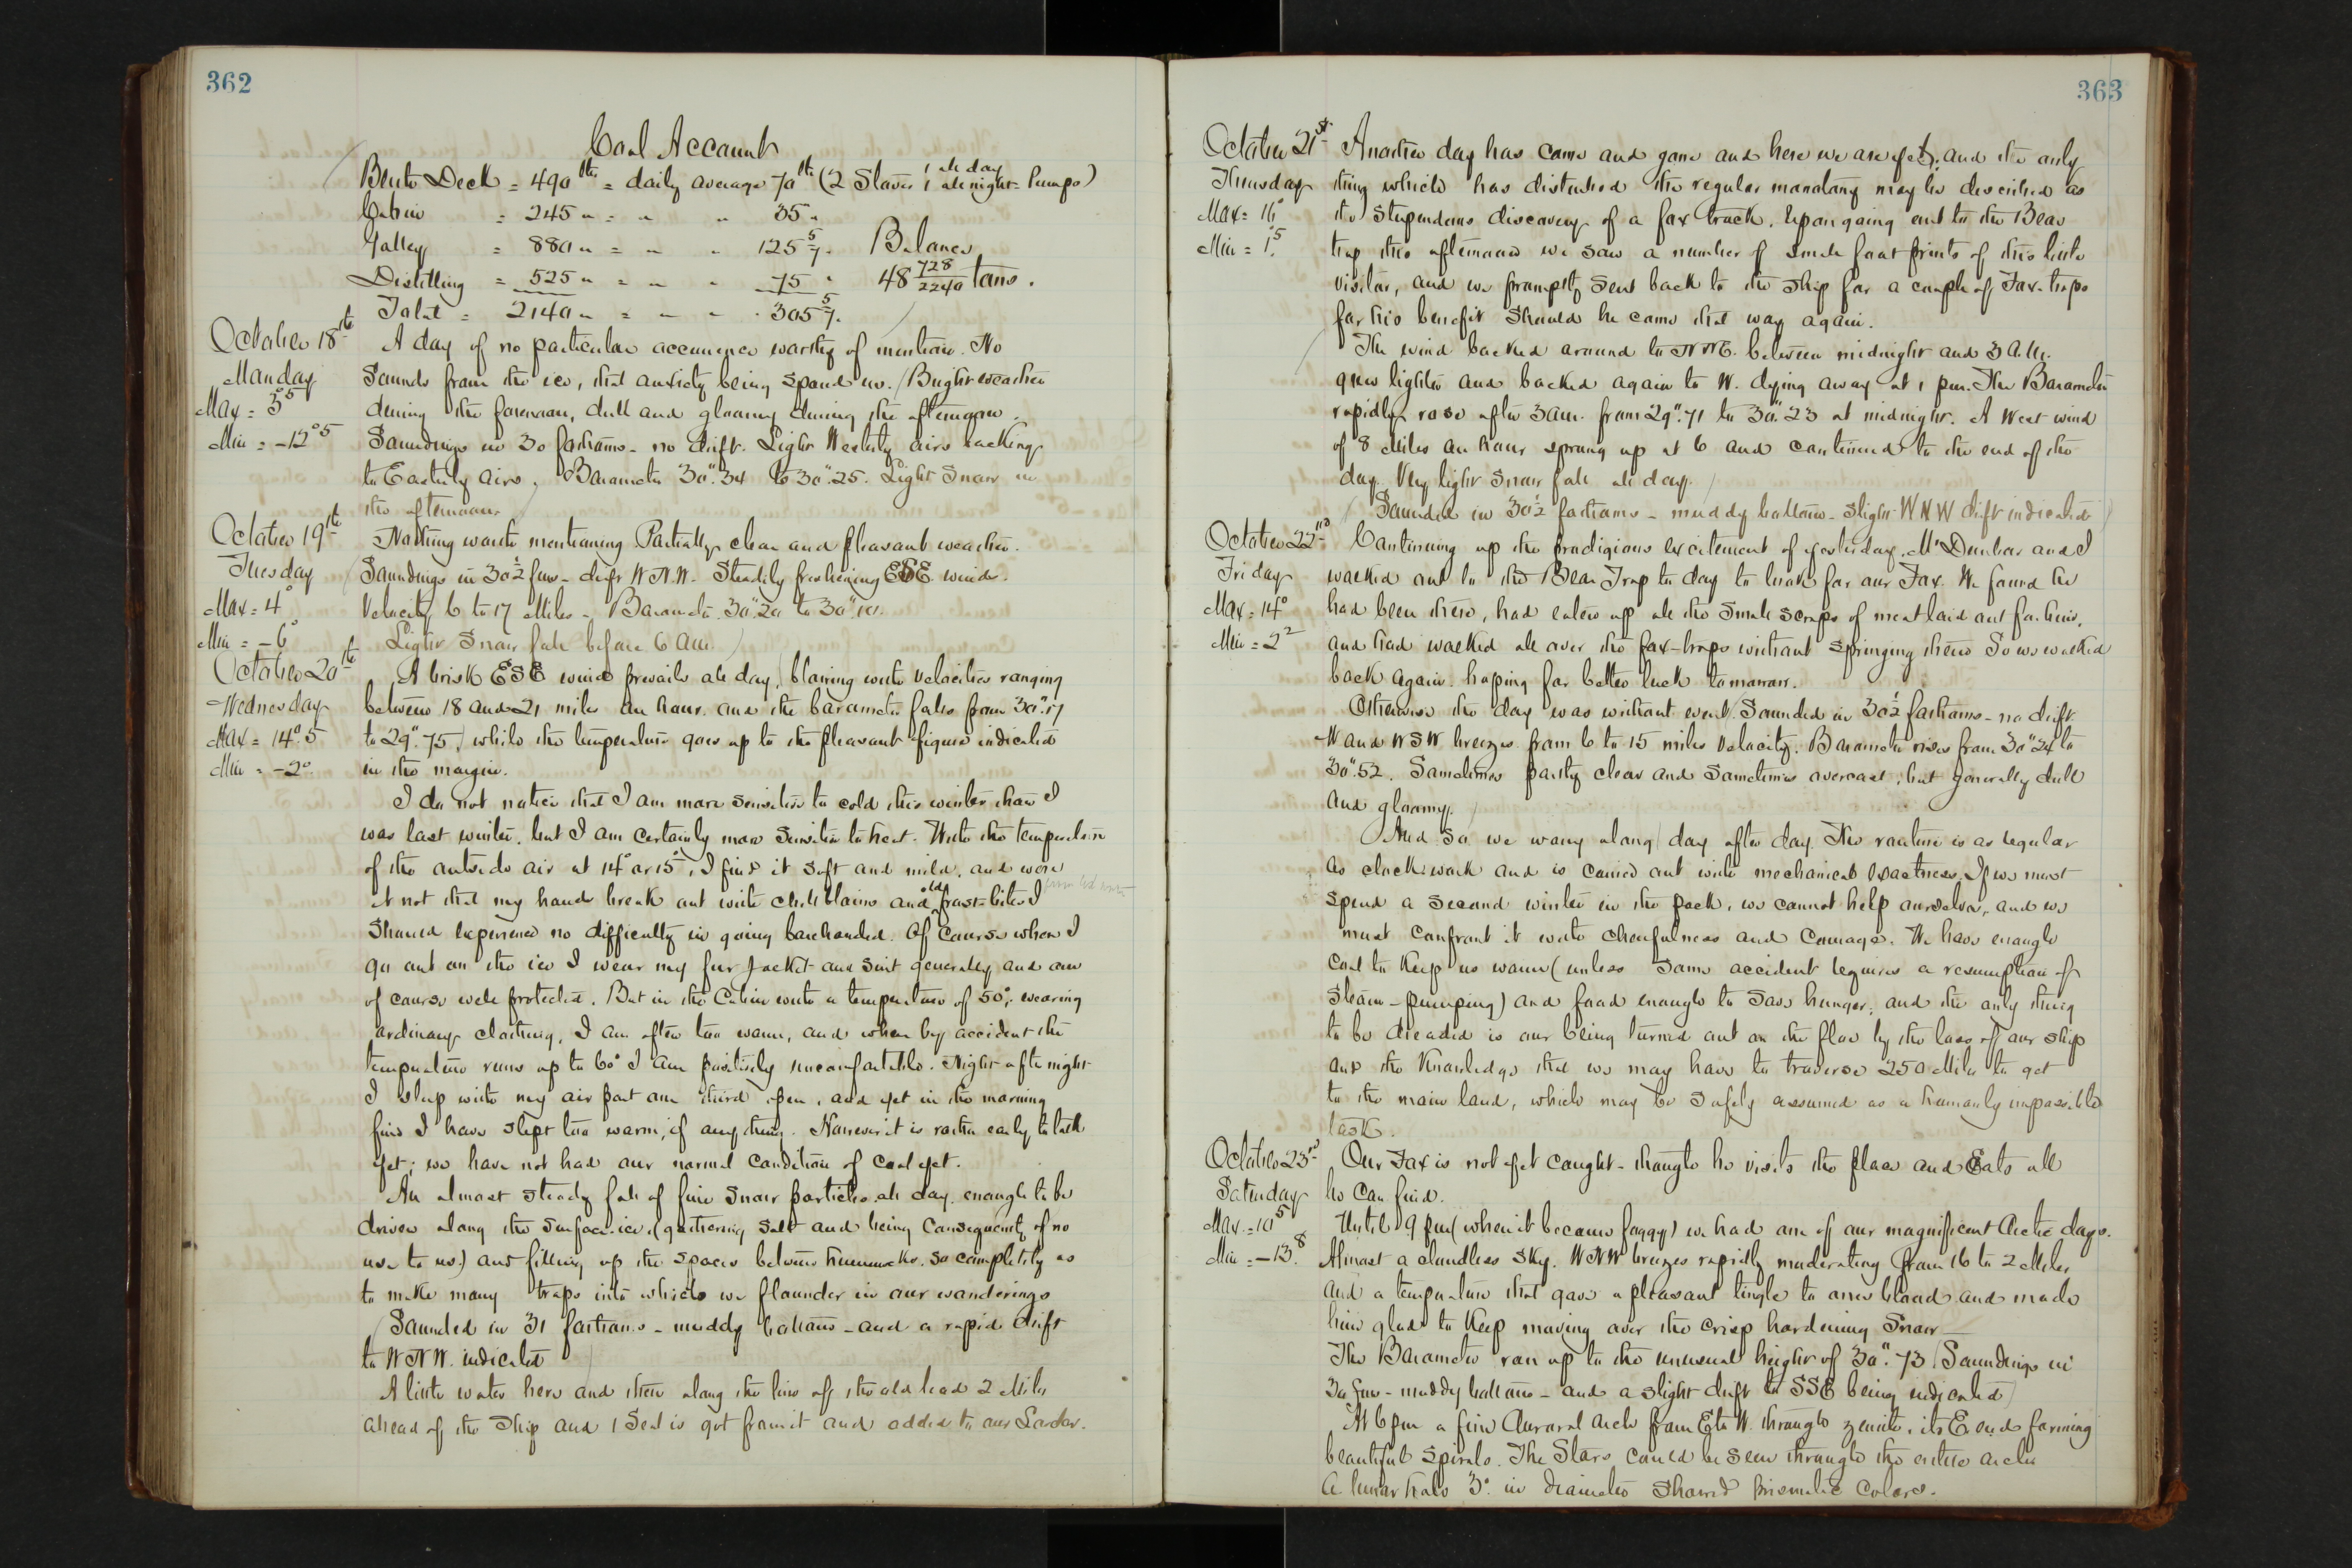 362
Coal Account
Berth Deck = 490 lbs = daily average 70 lbs (2 Stoves 1 all day 1 all night = Pumps)
Cabin = 245 " = " " 35 "
Galley = 880 " = " " 125 5/7 " Balance
Distilling = 525 " = " " 75 " 48 728/2240 tons.
Total = 2140 " = " " 305 5/7 "
October 18th A day of no particular occurrence worthy of mention. No
Monday sounds from the ice, that anxiety being spared us. Bright weather
Max = 3°5 during the forenoon, dull and gloomy during the afternoon.
Min = -12°5 Soundings in 30 fathoms - no drift. Light Westerly airs backing
to Easterly airs. Barometer 30".34 to 30".25. Light snow in
the afternoon.
October 19th Nothing worth mentioning. Partially clear and pleasant weather.
Tuesday Soundings in 30½ fms - drift W.N.W. Steadily freshening ESE winds.
Max = 4° Velocity 6 to 17 miles - Barometer 30".20 to 30".10.
Min = -6° Light Snow fall before 6 AM.
October 20th A brisk ESE wind prevails all day, blowing with velocities ranging
Wednesday between 18 and 21 miles an hour. and the barometer falls from 30".17
Max = 14°.5 to 29".75, while the temperature goes up to the pleasant figure indicated
Min = -2° in the margin.
I do not notice that I am more sensitive to cold this winter than I
was last winter, but I am certainly more sensitive to heat. With the temperature
of the outside air at 14° or 15°, I find it soft and mild, and were
it not that my hands break out with chilblains and old frost-bites from last winter I
should experience no difficulty in going barehanded. Of course when I
go out on the ice I wear my fur jacket and suit generally and am
of course well protected. But in the Cabin with a temperature of 50°, wearing
ordinary clothing, I am often too warm, and when by accident the
temperature runs up to 60° I am positively uncomfortable. Night after night
I sleep with my air port one third open, and yet in the morning
find I have slept too warm, if any thing. However it is rather early to talk
yet; we have not had our normal condition of cold yet.
An almost steady fall of fine snow particles all day. enough to be
driven along the surface ice, (gathering salt and being consequently of no
use to us) and filling up the spaces between hummocks so completely as
to make many traps into which we flounder in our wanderings
Sounded in 31 fathoms - muddy bottom - and a rapid drift
to W.N.W. indicated
A little water here and there along the line of the old lead 2 Miles
ahead of the Ship and 1 Seal is got from it and added to our Larder.
363
October 21st Another day has come and gone and here we are yet; and the only
Thursday thing which has disturbed the regular monotony may be described as
Max = 16° the stupendous discovery of a fox track. Upon going out to the Bear
Min = 1°5 trap this afternoon we saw a number of small foot prints of this little
visitor, and we promptly sent back to the ship for a couple of Fox-traps
for his benefit should he come that way again.
The wind backed around to NNE. between midnight and 3 A.M.
grew lighter and backed again to W. dying away at 1 pm. The Barometer
rapidly rose after 3 am. from 29".71 to 30".23 at midnight. A West wind
of 8 Miles an hour sprung up at 6 and continued to the end of the
day. Very light snow fall all day.
Sounded in 30½ fathoms - muddy bottom - slight WNW drift indicated
October 22nd Continuing up the prodigious excitement of yesterday, Mr Dunbar and I
Friday walked out to the Bear Trap to day to look for our Fox. We found he
Max = 14° had been there, had eaten up all the small scraps of meat laid out for him,
Min = 2°2 and had walked all over the fox-traps without springing them So we walked
back again. hoping for better luck tomorrow.
Otherwise the day was without event. Sounded in 30½ fathoms - no drift.
W and WSW breezes from 6 to 15 miles velocity. Barometer rises from 30".24 to
30".52. Sometimes partly clear and sometimes overcast, but generally dull
and gloomy.
And so we worry along day after day. The routine is as regular
as clock-work and is carried out with mechanical exactness. If we must
spend a second winter in the pack, we cannot help ourselves, and we
must confront it with cheerfulness and courage. We have enough
coal to keep us warm (unless some accident requires a resumption of
steam-pumping) and food enough to save hunger; and the only thing
to be dreaded is our being turned out on the floe by the loss of our ship
and the knowledge that we may have to traverse 250 Miles to get
to the main land, which may be safely assumed as a humanly impossible
task.
October 23rd Our Fox is not yet caught - though he visits the place and Eats all
Saturday he can find.
Max = 10°5 Until 9 pm (when it became foggy) we had one of our magnificent Arctic days.
Min = -13°8 Almost a cloudless sky. WNW breezes rapidly moderating from 16 to 2 Miles,
and a temperature that gave a pleasant tingle to ones blood and made
him glad to keep moving over the crisp hardening snow
The Barometer ran up to the unusual height of 30".73. Soundings in
30 fms - muddy bottom - and a slight drift to SSE being indicated
At 6 pm a fine Auroral Arch from E to W. through zenith, its E. end forming
beautiful spirals. The Stars could be seen through the entire arch
A lunar halo 3° in diameter showed prismatic colors.